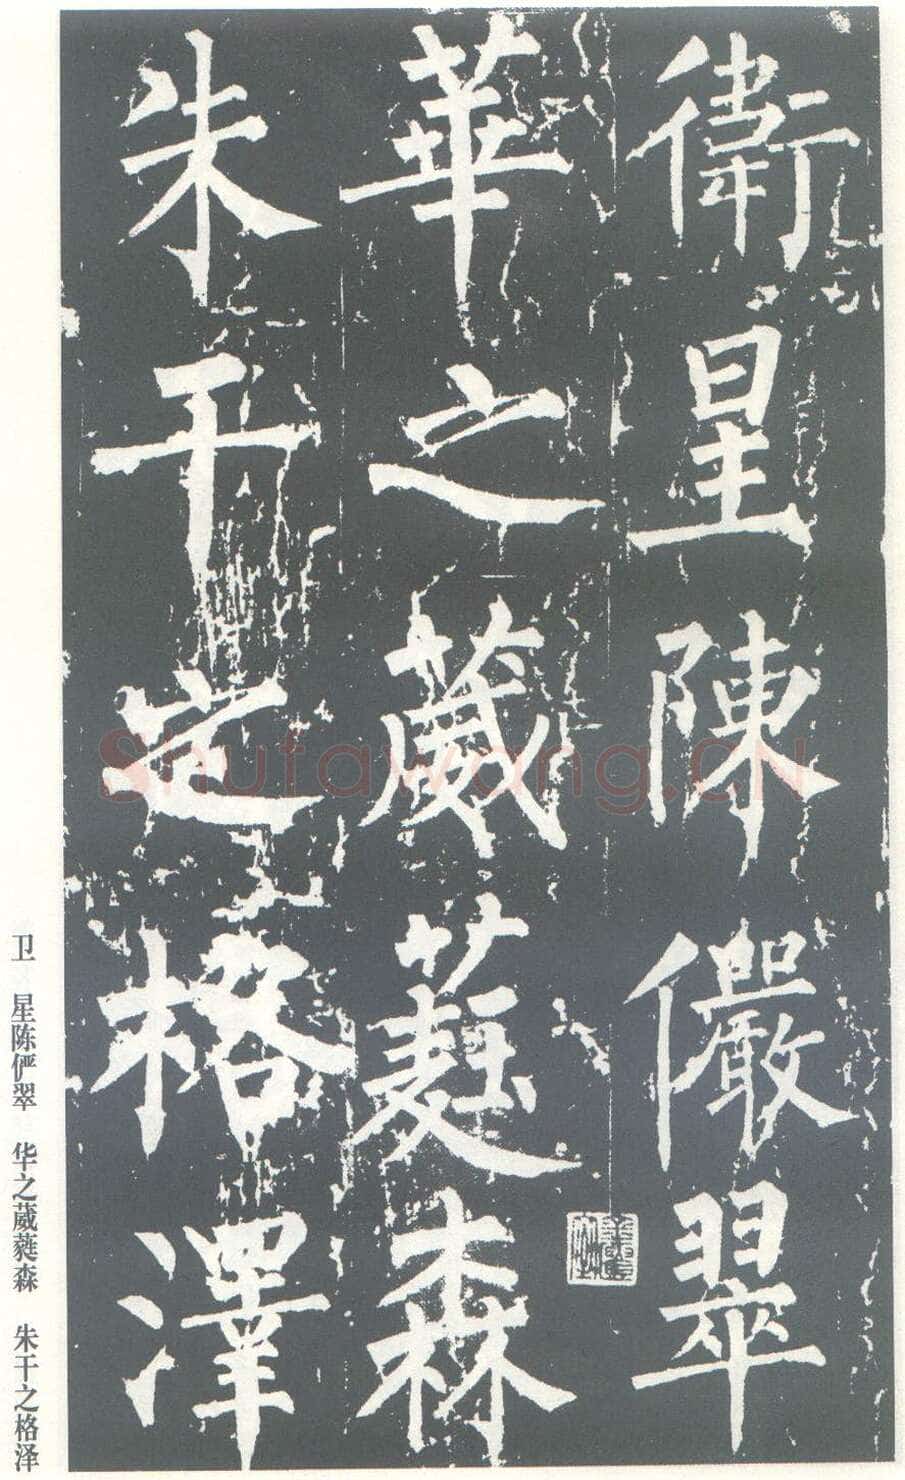 衛星陳儼翠
華之葳蕤森
朱干之格澤
卫 星陈俨翠 华之葳蕤森 朱干之格泽
Shufawang.CN